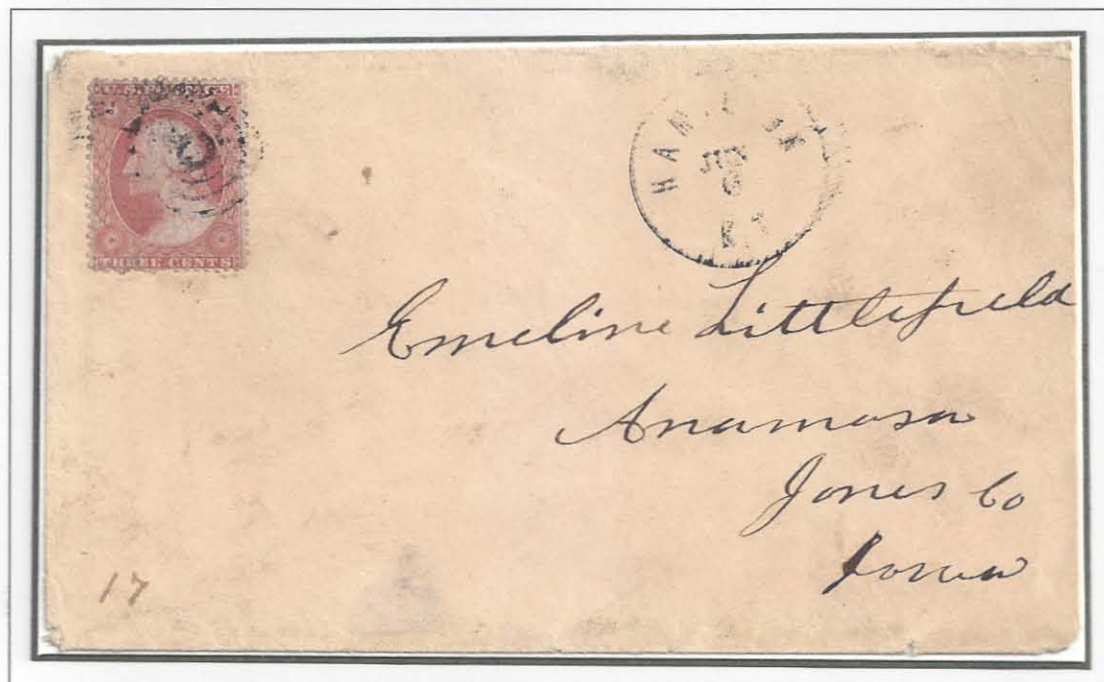 THREE CENTS
JUN
6
Emeline Littlefield
Anamosa
Jones Co
Iowa
17